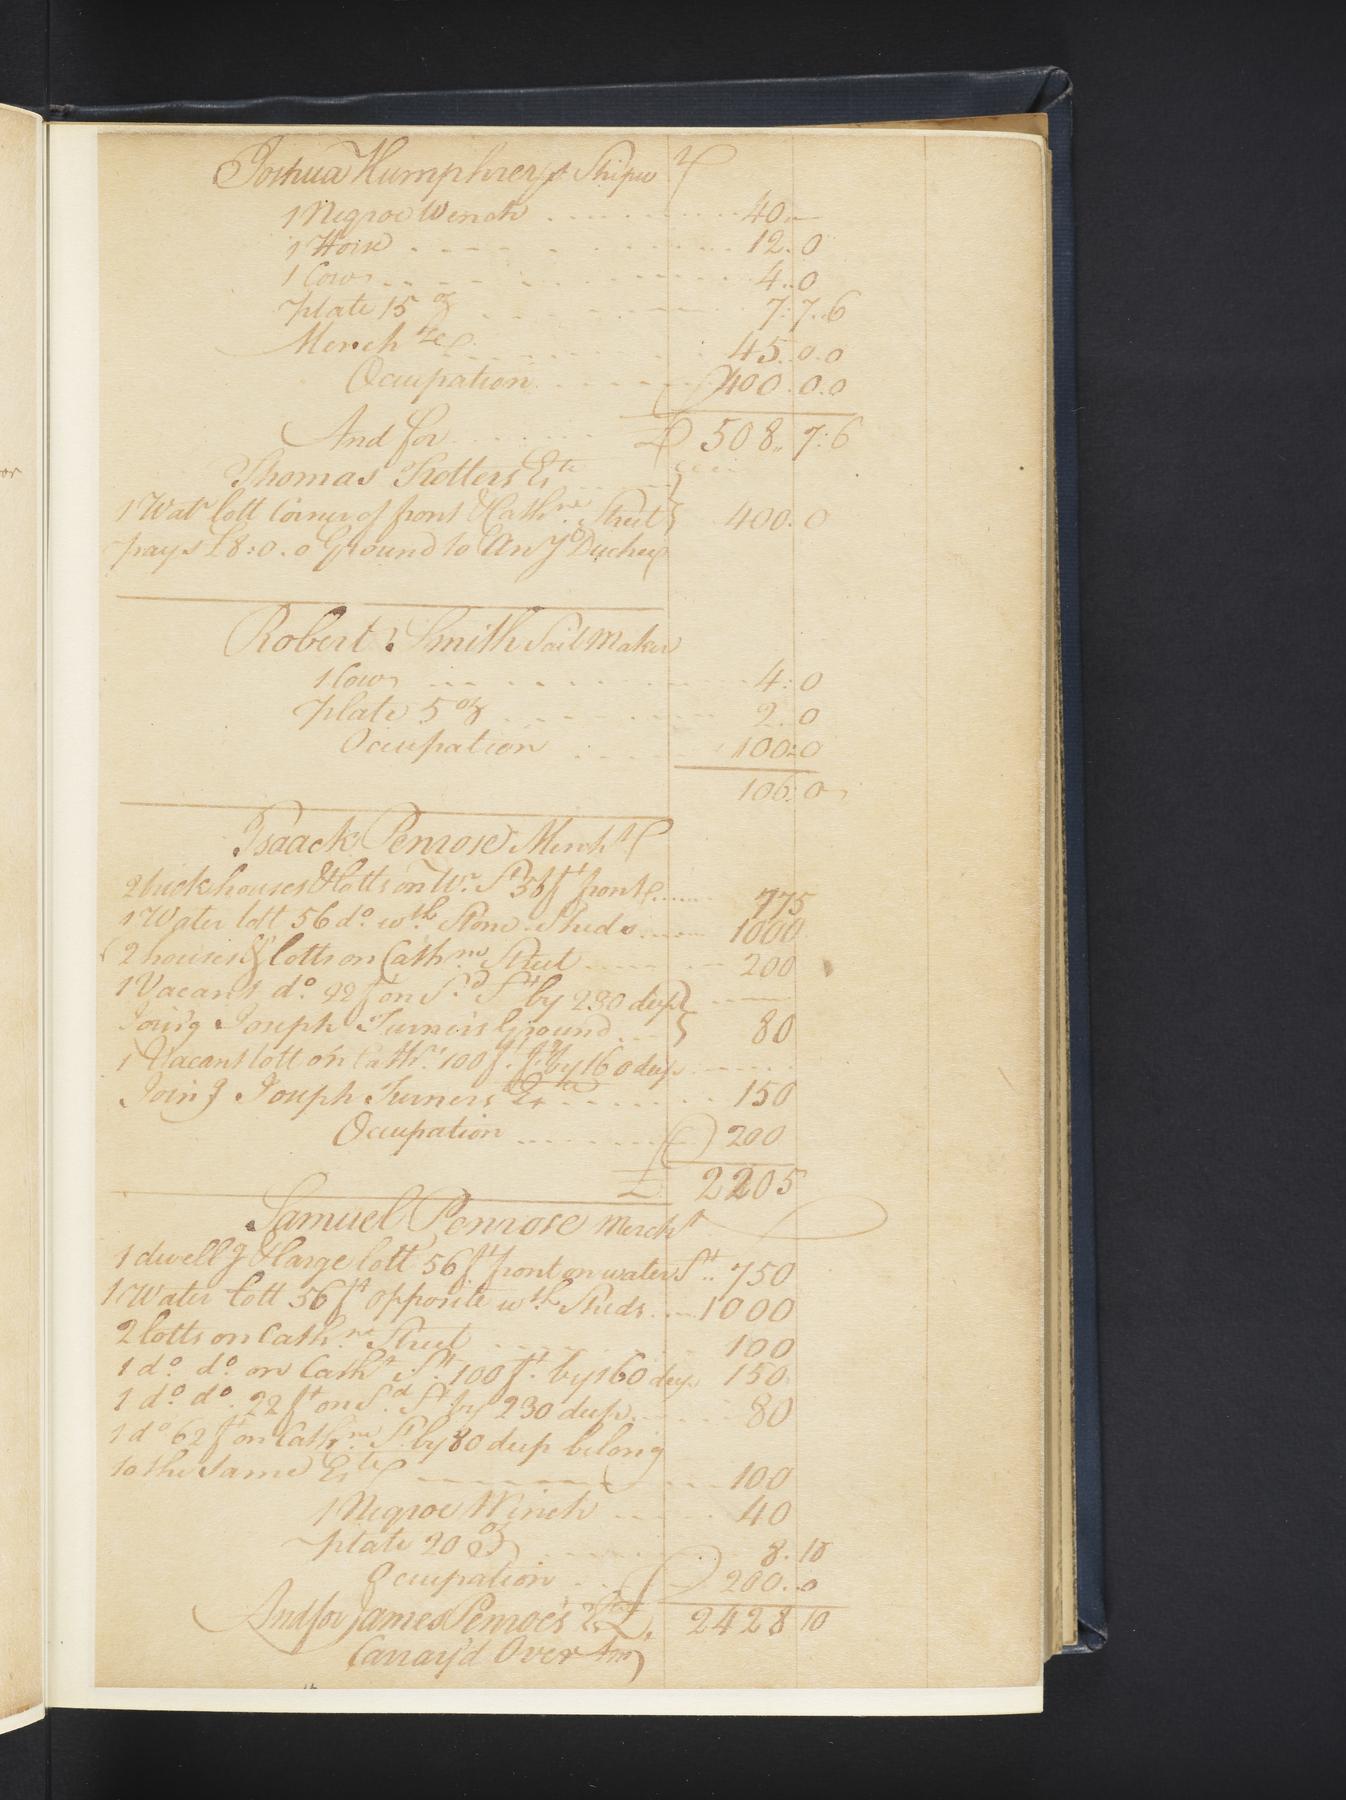 Joshua Humphreys Shipw rt
1 Negroe Wench 40..—
1 Horse 12..0
1 Cow 4..0
plate 15 oz 7:7..6
Merch dze 45..0..0
Occupation 400..0..0
And for £ 508,, 7:6
Thomas Trotters Es te
1 Wat r lott Corner of front & Cath ne Street 400:0
pays £8:0.0 Ground to And w Duchey
Robert Smith Sail Maker
1 Cow 4:0
plate 5 oz 2..0
Occupation 100:0
106:0
Isaack Penrose Merch t
2 brick houses & lotts on Wr. St 56 ft front 775
1 Water lott 56 do. wth Stone Sheds 1000
2 houses & lotts on Cath ne Street 200
1 Vacant do. 22 ft on Sd. St by 230 deep
Joing Joseph Turners Ground 80
1 Vacant lott on Cath ne 100 ft by 160 deep
Join g Joseph Turners Es te 150
Occupation 200
£ 2205
Samuel Penrose Merch t
1 dwell g & large lott 56 ft front on water St.. 750
1 Water lott 56 ft opposite wth Sheds 1000
2 lotts on Cath ne Street 100
1 do. do. on Cath e St 100 ft. by 160 deep 150
1 do. do. 22 ft on Sd. St by 230 deep 80
1 do 62 ft on Cath ne St by 80 deep belong
to the same Es te 100
1 Negroe Winch 40
plate 20 oz 8.10
Occupation 200..0
And for James Penroes Es te £. 2428 10
Carray'd Over